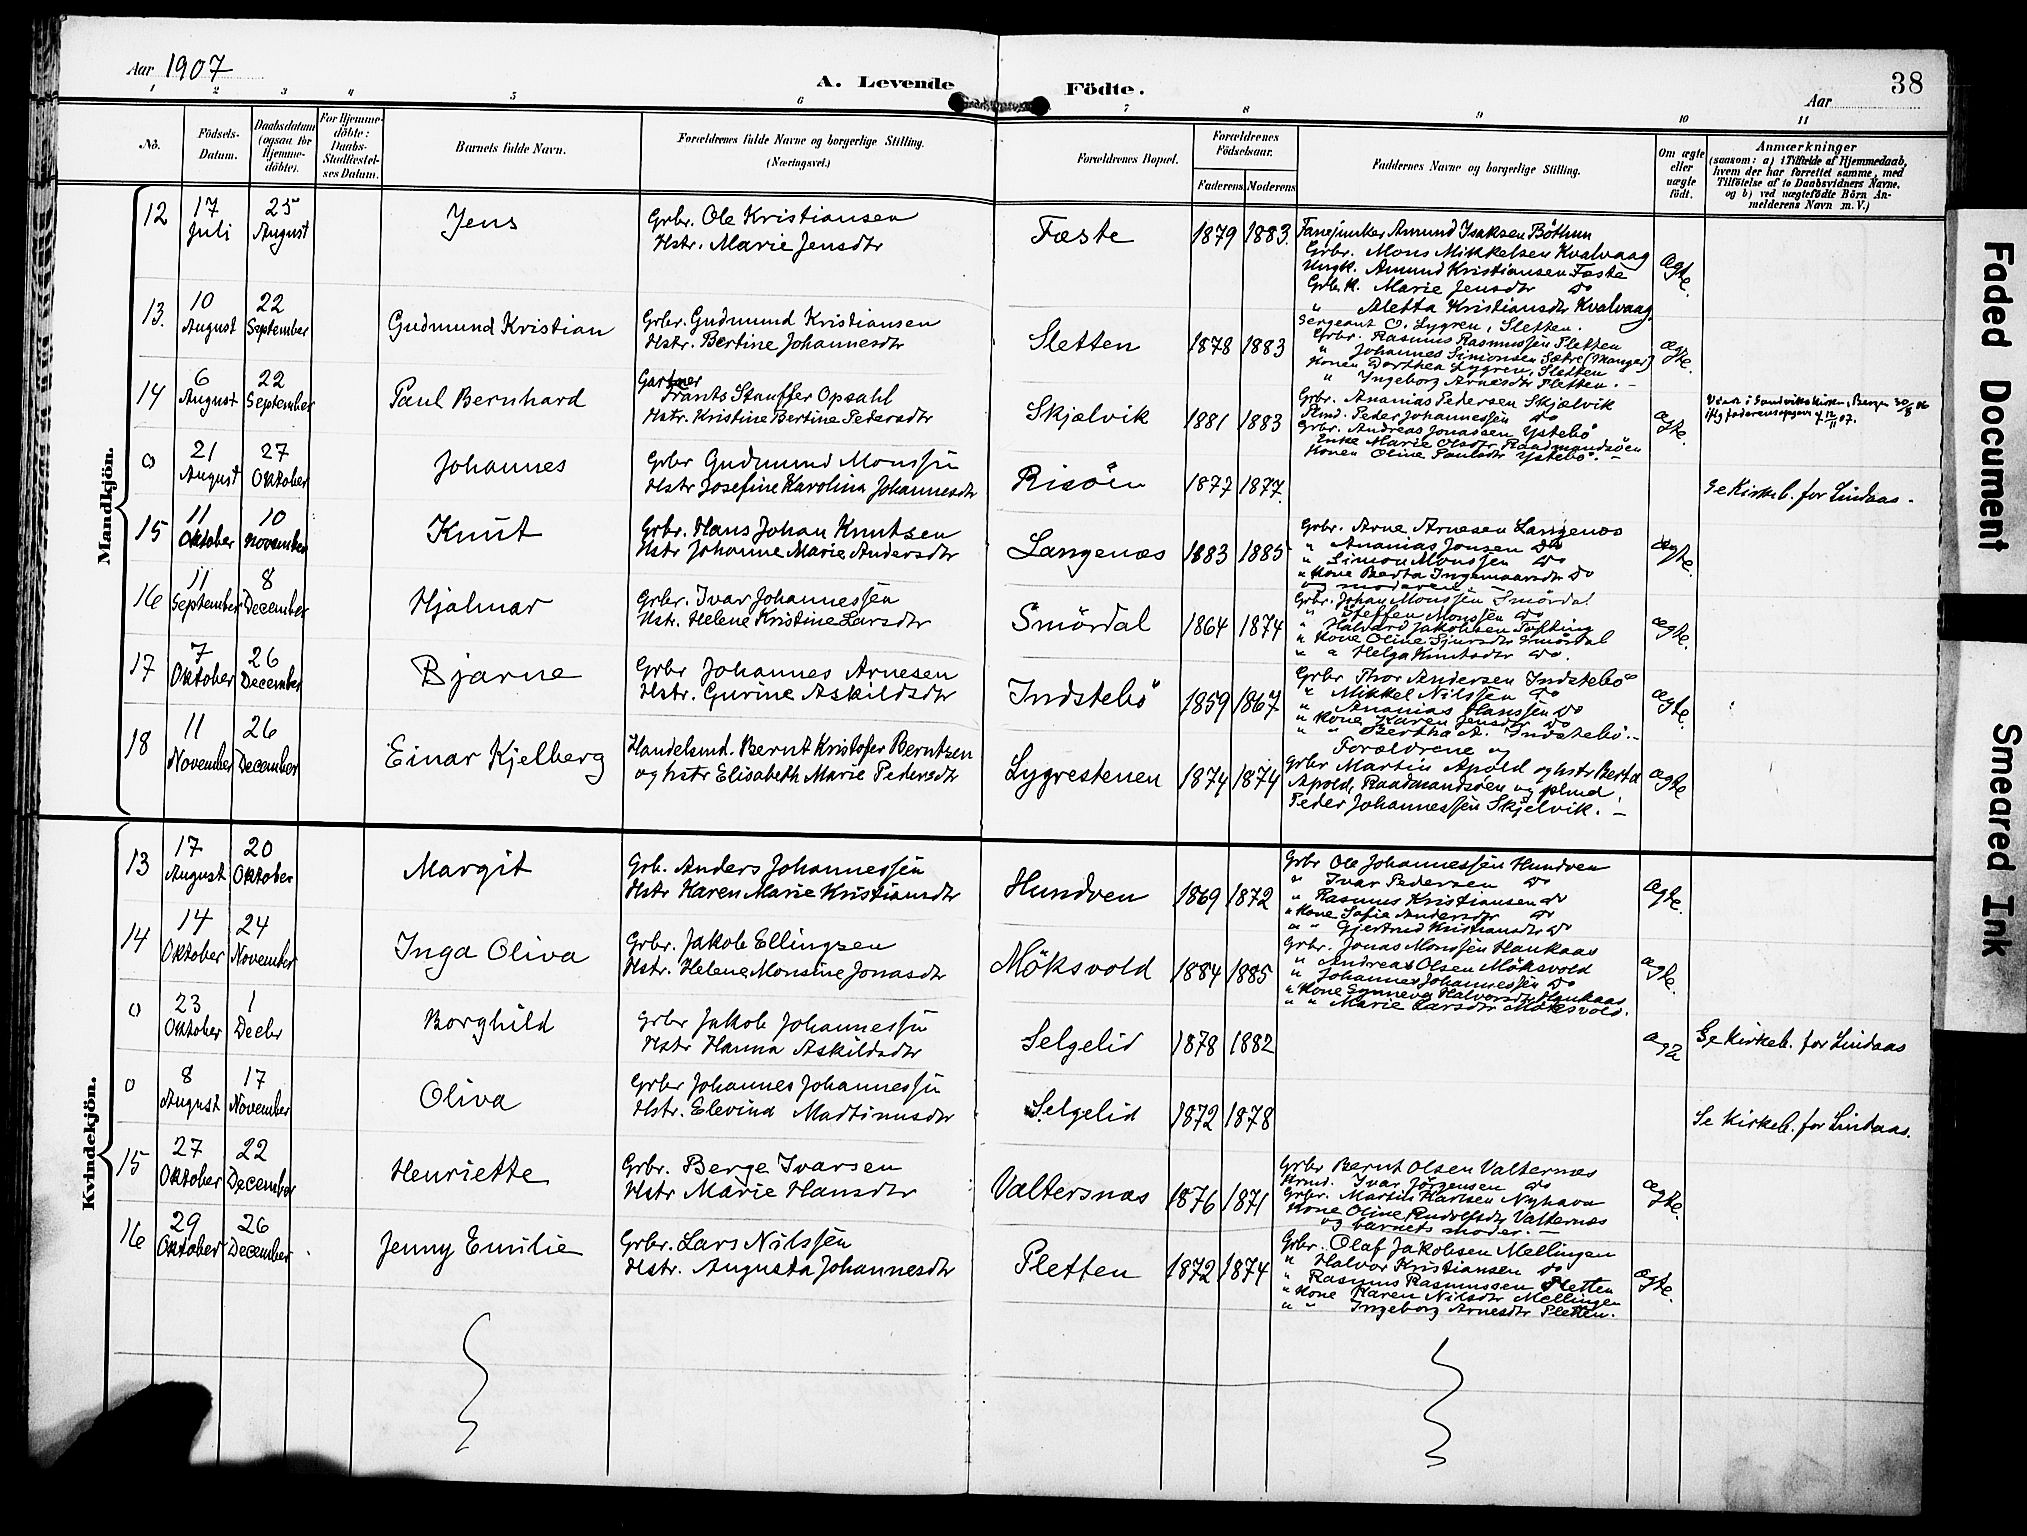 Aar 1907
A. Levende Födte.
38
Aar
1 2 3 4 5 6 7 8 9 10 11
No.
Födsels-Datum.
Daabsdatum (ogsaa for Hjemmedöbte).
For Hjemmedöbte: Daabs-Stadfæstelses Datum.
Barnets fulde Navn.
Forældrenes fulde Navne og borgerlige Stilling. (Næringsvei.)
Forældrenes Bopæl.
Forældrenes Födselsaar.
Faderens
Moderens
Faddernes Navne og borgerlige Stilling.
Om ægte eller uægte födt.
Anmærkninger
(saasom: a) i Tilfælde af Hjemmedaab, hvem der har forrettet samme, med Tilföielse af to Daabsvidners Navne, og b) ved uægtefödte Börn Anmelderens Navn m. V.)
Mandkjön.
12 17 Juli 25 August Jens
Grbr. Ole Kristiansen
Hstr. Marie Jensdtr
Fæste 1879 1883.
Fanejunker Amund Isaksen Böthun
Grbr. Mons Mikkelsen Kvalvaag
Ungk. Amund Kristiansen Fæste
Grbr.k. Marie Jensdtr do
" Aletta Kristiansdtr Kvalvaag
ægte.
13. 10 August 22 September Gudmund Kristian
Grbr. Gudmund Kristiansen
Hstr. Bertine Johannesdtr
Sletten 1878 1883
Sergeant O. Lygren, Sletten.
Grbr. Rasmus Rasmussen Sletten
" Johannes Simonsen Sætre (Manger)
Konen Dorthea Lygren, Sletten
" Ingeborg Arnesdtr Sletten. —
ægte.
14 6 August 22 September Paul Bernhard
Gartner
Frants Stauffer Opsahl
Hstr. Kristine Bertine Pedersdtr
Skjælvik 1881 1883
Grbr. Ananias Pedersen Skjælvik
Peder Johannessen do
Grbr. Andreas Jonassen Ystebö
Enke Marie Olsdtr Raadmandsöen
Konen Oline Paulsdtr Ystebö. —
ægte.
Viet i Sandvikskirken, Bergen 30/8 06
0 21 August 27 Oktober Johannes
Grbr Gudmund Monssen
Hstr Josefine Karolina Johannesdtr
Risöen 1877 1877.
Se Kirkeb. for Lindaas.
15 11 Oktober 10 November Knut
Grbr. Hans Johan Knutsen
Hstr Johanne Marie Andersdtr
Langenæs 1883 1885
Grbr. Arne Arnesen Langenæs
" Ananias Jonsen do
" Simon Monssen do
" Kone Berta Ingemaarsdtr do
og moderen
ægte.
16 11 September 8 December Hjalmar
Grbr. Ivar Johannessen
Hstr. Helene Kristine Larsdtr
Smördal 1864 1874
Grbr. Johan Monssen Smördal
" Steffen Monssen do
" Halvard Jakobsen Tofting
" Kone Oline Sjursdtr Smördal
" " Helga Knutsdtr do.
ægte.
17 7 Oktober 26 December Bjarne
Grbr Johannes Arnesen
Hstr. Gurine Askildsdtr
Indstebö 1859 1867
Grbr Thor Andersen Indstebö
" Mikkel Nilssen do
" Ananias Hanssen do
" Kone Karen Jensdtr do
" " Bertha A. Indstebö. —
ægte.
18 11 November 26 December Einar Kjelberg
Handelsmd. Bernt Kristofer Berntsen
og hstr Elisabeth Marie Pedersdtr
Lygrestenen 1874 1874
Forældrene og
Grbr Martin Apold og hstr Berta
Apold, Raadmandsöen og
Peder Johannessen Skjelvik. —
ægte
Kvindekjön.
13 17 August 20 Oktober Margit
Grb. Anders Johannessen
Hstr Karen Marie Kristiansdtr
Hundven 1869 1872
Grbr Ole Johannessen Hundven
" Ivar Pedersen do
" Rasmus Kristiansen do
" Kone Sofie Andersdtr do
" " Gjertrud Kristiansdtr do
ægte.
14 14 Oktober 24 November Inga Oliva
Grbr. Jakob Ellingsen
Hstr. Helene Monsine Jonasdtr
Möksvold 1884 1885
Grbr. Jonas Monssen Haukaas
" Andreas Olsen Möksvold
" Johannes Johannessen do
" Kone Synneva Halvorsdtr Haukaas
" " Marie Larsdtr Möksvold.
ægte.
0 23 Oktober 1 Decbr Borghild
Grbr Jakob Johannessen
Hstr Hanna Askildsdtr
Selgelid 1878 1882
Se Kirkeb. for Lindaas
0 8 August 17 November Oliva
Grbr Johannes Johannessen
Hstr. Elevina Martinusdtr
Selgelid 1872 1878
Se Kirkeb. for Lindaas.
15 27 Oktober 22 December Henriette
Grbr. Berge Ivarsen
Hstr Marie Hansdtr
Valtersnæs 1876 1871
Grbr Bernt Olsen Valternæs
Ivar Jörgensen do
Grbr. Martin Karlsen Nyhavn
Kone Oline Rudolfsdtr Valternæs
og barnets moder. —
ægte.
16 29 Oktober 26 December Jenny Emilie
Grbr. Lars Nilssen
Hstr. Augusta Johannesdtr
Sletten 1872 1874
Grbr. Olaf Jakobsen Mellingen
" Halvor Kristiansen do
" Rasmus Rasmussen Sletten
" Kone Karen Nilsdtr Mellingen
" " Ingeborg Arnesdtr Sletten.
ægte.
Faded Document
Smeared Ink